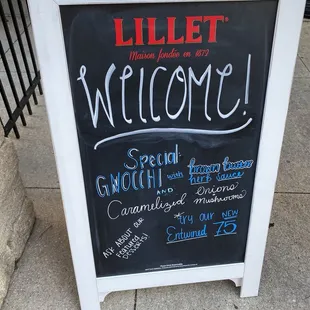 LILLET
Maison fondée en 1872
WELCOME!
Special
GNOCCHI with
herb sauce
AND
Caramelized Onions
Mushrooms
*try our NEW
Entwined 75
ASK ABOUT OUR
Featured
DESSERTS!